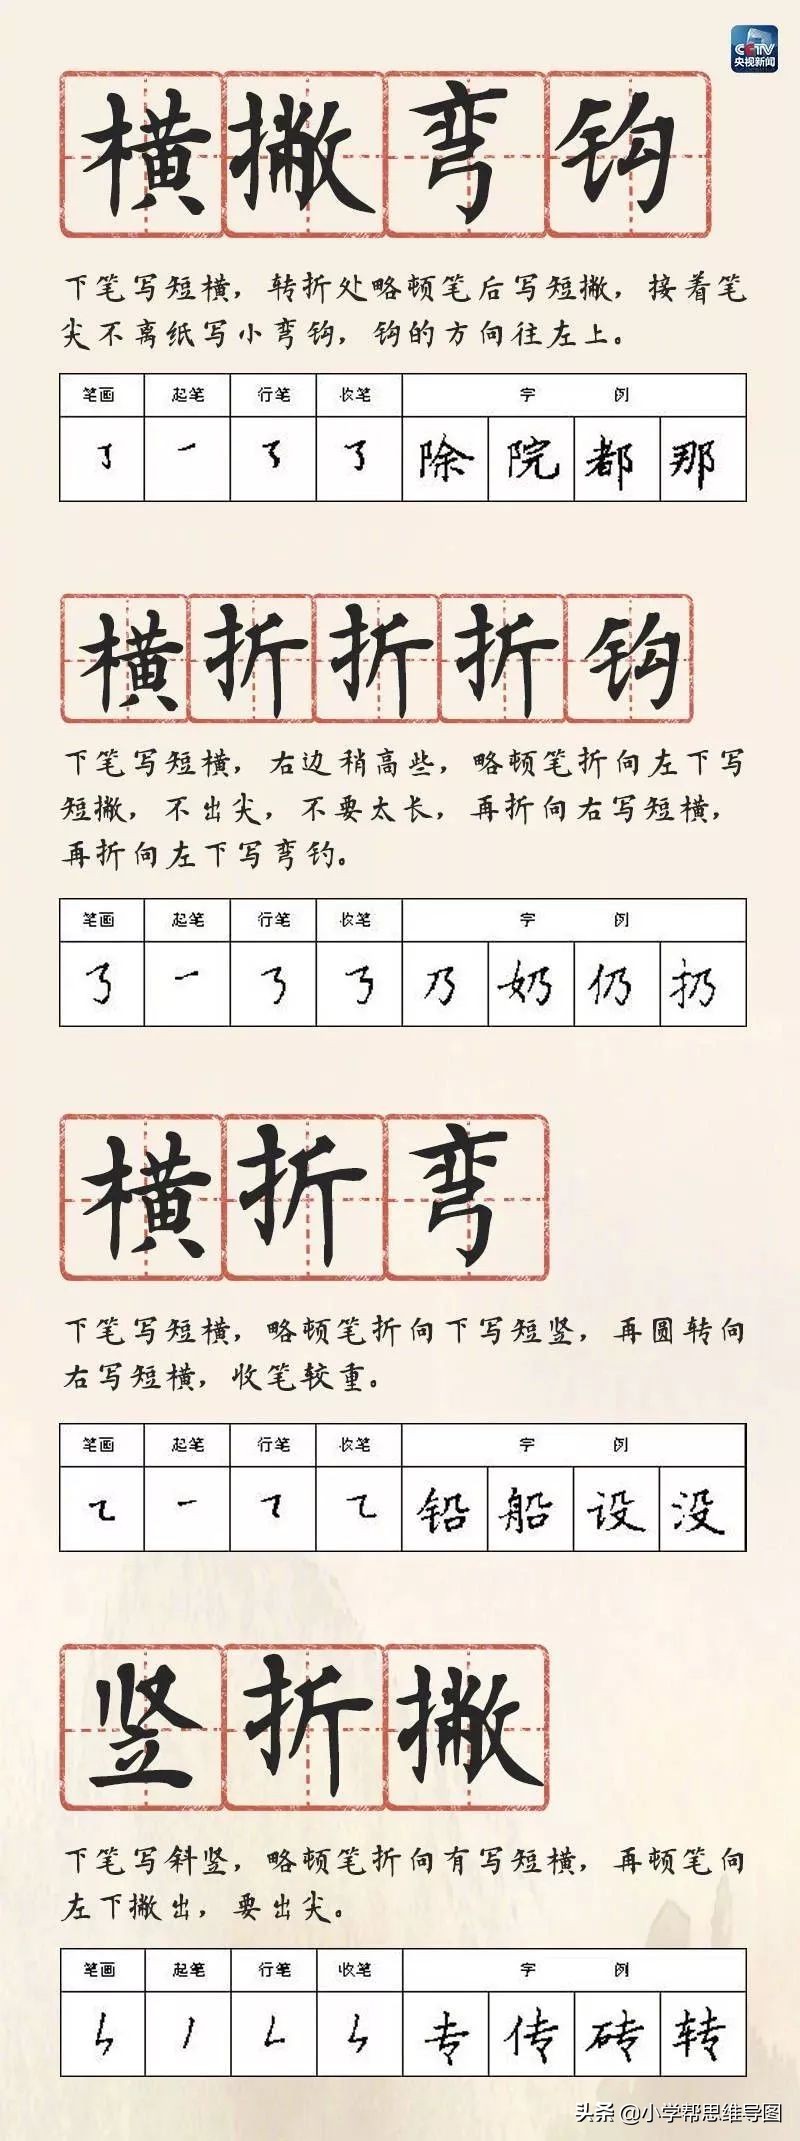 CCTV
央视新闻
横撇弯钩
下笔写短横，转折处略顿笔后写短撇，接着笔
尖不离纸写小弯钩，钩的方向往左上。
笔画 起笔 行笔 收笔 字 例
除 院 都 那
横折折折钩
下笔写短横，右边稍高些，略顿笔折向左下写
短撇，不出尖，不要太长，再折向右写短横，
再折向左下写弯钓。
笔画 起笔 行笔 收笔 字 例
㇋ ㇐ ㇋ ㇋ 乃 奶 仍 扔
横折弯
下笔写短横，略顿笔折向下写短竖，再圆转向
右写短横，收笔较重。
笔画 起笔 行笔 收笔 字 例
㇍ ㇐ ㇍ ㇍ 铅 船 设 没
竖折撇
下笔写斜竖，略顿笔折向有写短横，再顿笔向
左下撇出，要出尖。
笔画 起笔 行笔 收笔 字 例
专 传 砖 转
头条 @小学帮思维导图